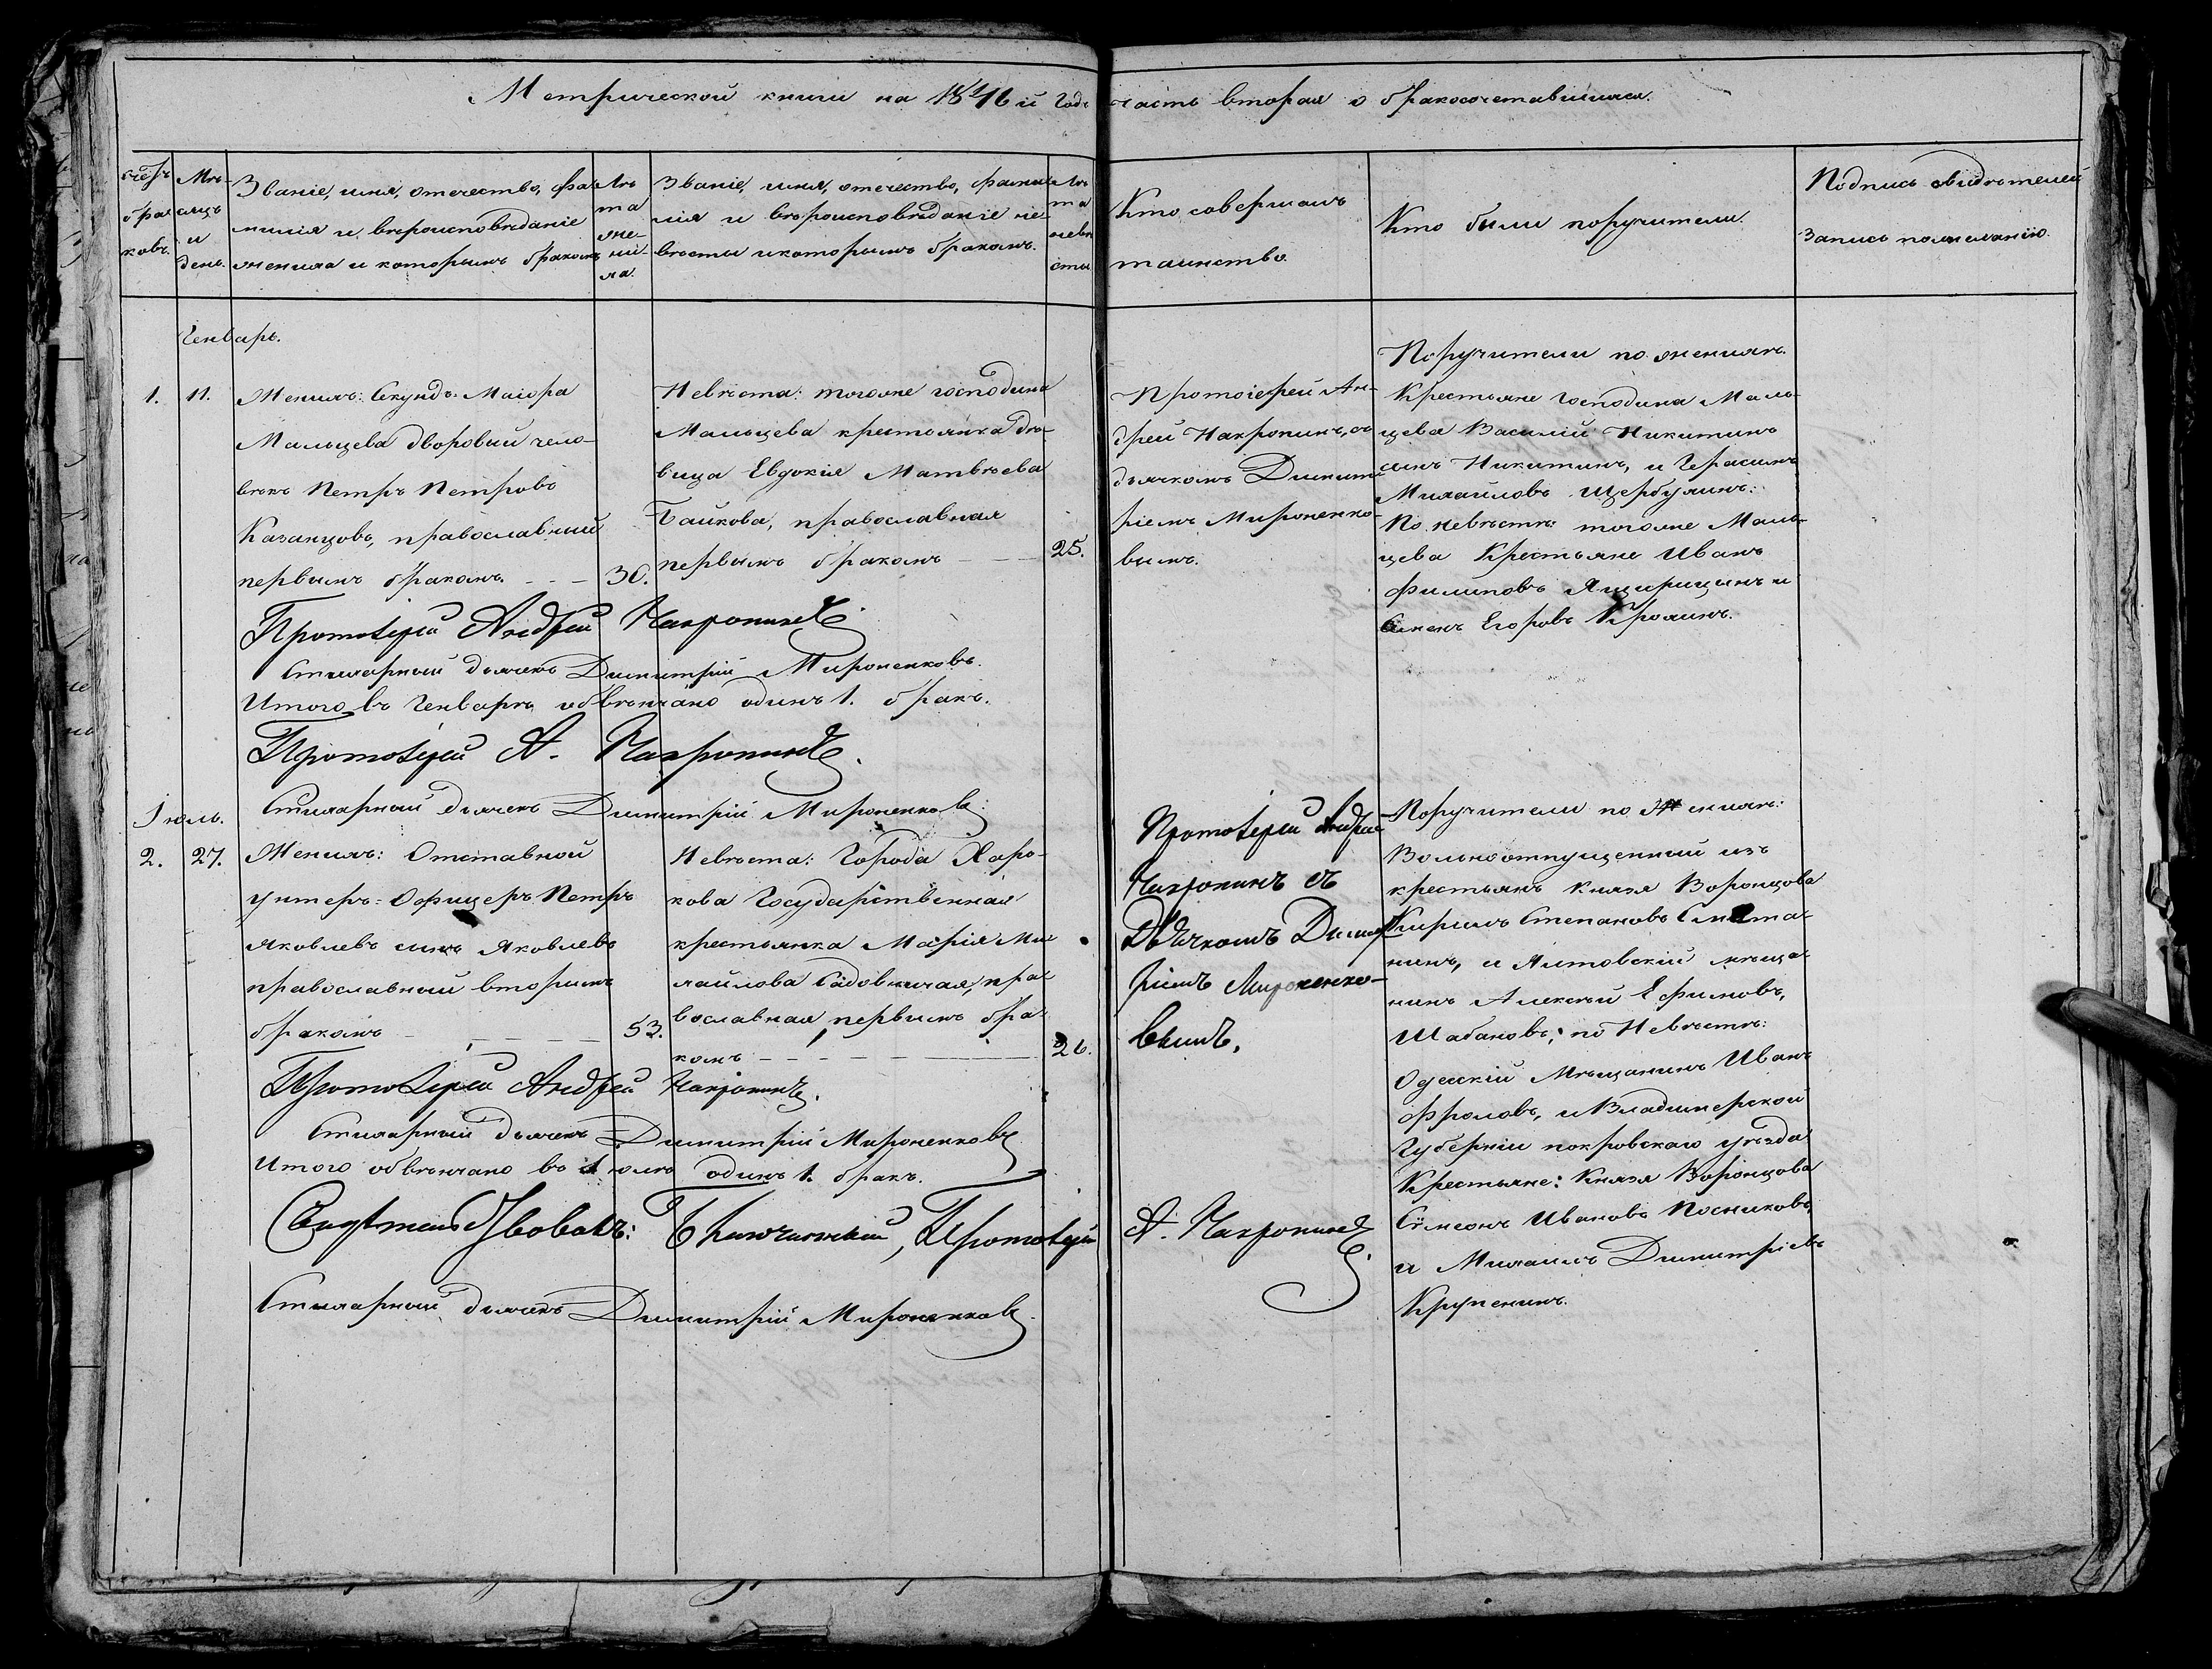 Метрической книги на 1846й годъ часть вторая о бракосочетавшихся.
Счетъ браковъ.
Мѣсяцъ и день.
Званіе, имя, отечество, фамилія и вѣроисповѣданіе жениха и которымъ бракомъ
Лѣта жениха.
Званіе, имя, отечество, фамилія и вѣроисповѣданіе невѣсты и которымъ бракомъ.
Лѣта невѣсты
Кто совершалъ таинство.
Кто были поручители.
Подпись свидѣтелей запись по желанію.
Генварь.
1.
11.
Женихъ: Секундъ-Маіора
Мальцева дворовый чело-
вѣкъ Петръ Петровъ
Казанцовъ, православный
первымъ бракомъ. - - -
30.
Невѣста: тогоже господина
Мальцева крестьянка дѣ-
вица Евдокія Матвѣева
Байкова, православная
первымъ бракомъ
25.
Протоіерей Ан-
дрей Накропинъ, съ
дьячкомъ Димит-
ріемъ Мироненко-
вымъ.
Поручители по женихѣ.
Крестьяне господина Маль-
цева Василій Никитинъ
сынъ Никитинъ, и Герасимъ
Михайловъ Щербулинъ:
По невѣстѣ тогоже Маль-
цева Крестьяне Иванъ
Филиповъ Ящирицынъ и
Семенъ Егоровъ Кроминъ.
Протоіерей Андрей Накропинъ
Стихарный дьячекъ Димитрій Мироненковъ.
Итого въ Генварѣ обвѣнчано одинъ 1. бракъ.
Протоіерей А. Накропинъ.
Стихарный дьячекъ Димитрій Мироненковъ:
Іюль.
2.
27.
Женихъ: Отставной
унтеръ-Офицеръ Петръ
Яковлевъ сынъ Яковлевъ
православный вторымъ
бракомъ
53.
Невѣста: Города Харь-
кова Государственная
крестьянка Марія Ми-
хайлова Садовничая, пра-
вославная, первымъ бра-
комъ
26.
Протоіерей Андрей
Накропинъ съ
Дьячкомъ Димит-
ріемъ Мироненко-
вымъ.
Поручители по Женихѣ:
Вольноотпущенный изъ
крестьянъ Князя Воронцова
Кирилъ Степановъ Смета-
нинъ, и Ялтовскій мѣща-
нинъ Алексѣй Ефимовъ,
Шабановъ; по Невѣстѣ:
Одесскій Мѣщанинъ Иванъ
Фроловъ, и Владимерской
Губерніи покровскаго уѣзда
Крестьяне: Князя Воронцова
Сѵмеонъ Ивановъ Посниковъ
и Михаилъ Димитріевъ
Крупенинъ.
Протоіерей Андрей Накропинъ.
Стихарный дьячекъ Димитрій Мироненковъ
Итого обвѣнчано въ Іюлѣ одинъ 1. бракъ.
Свидѣтельствовалъ: Протоіерей А. Накропинъ
Стихарный дьячекъ Димитрій Мироненковъ